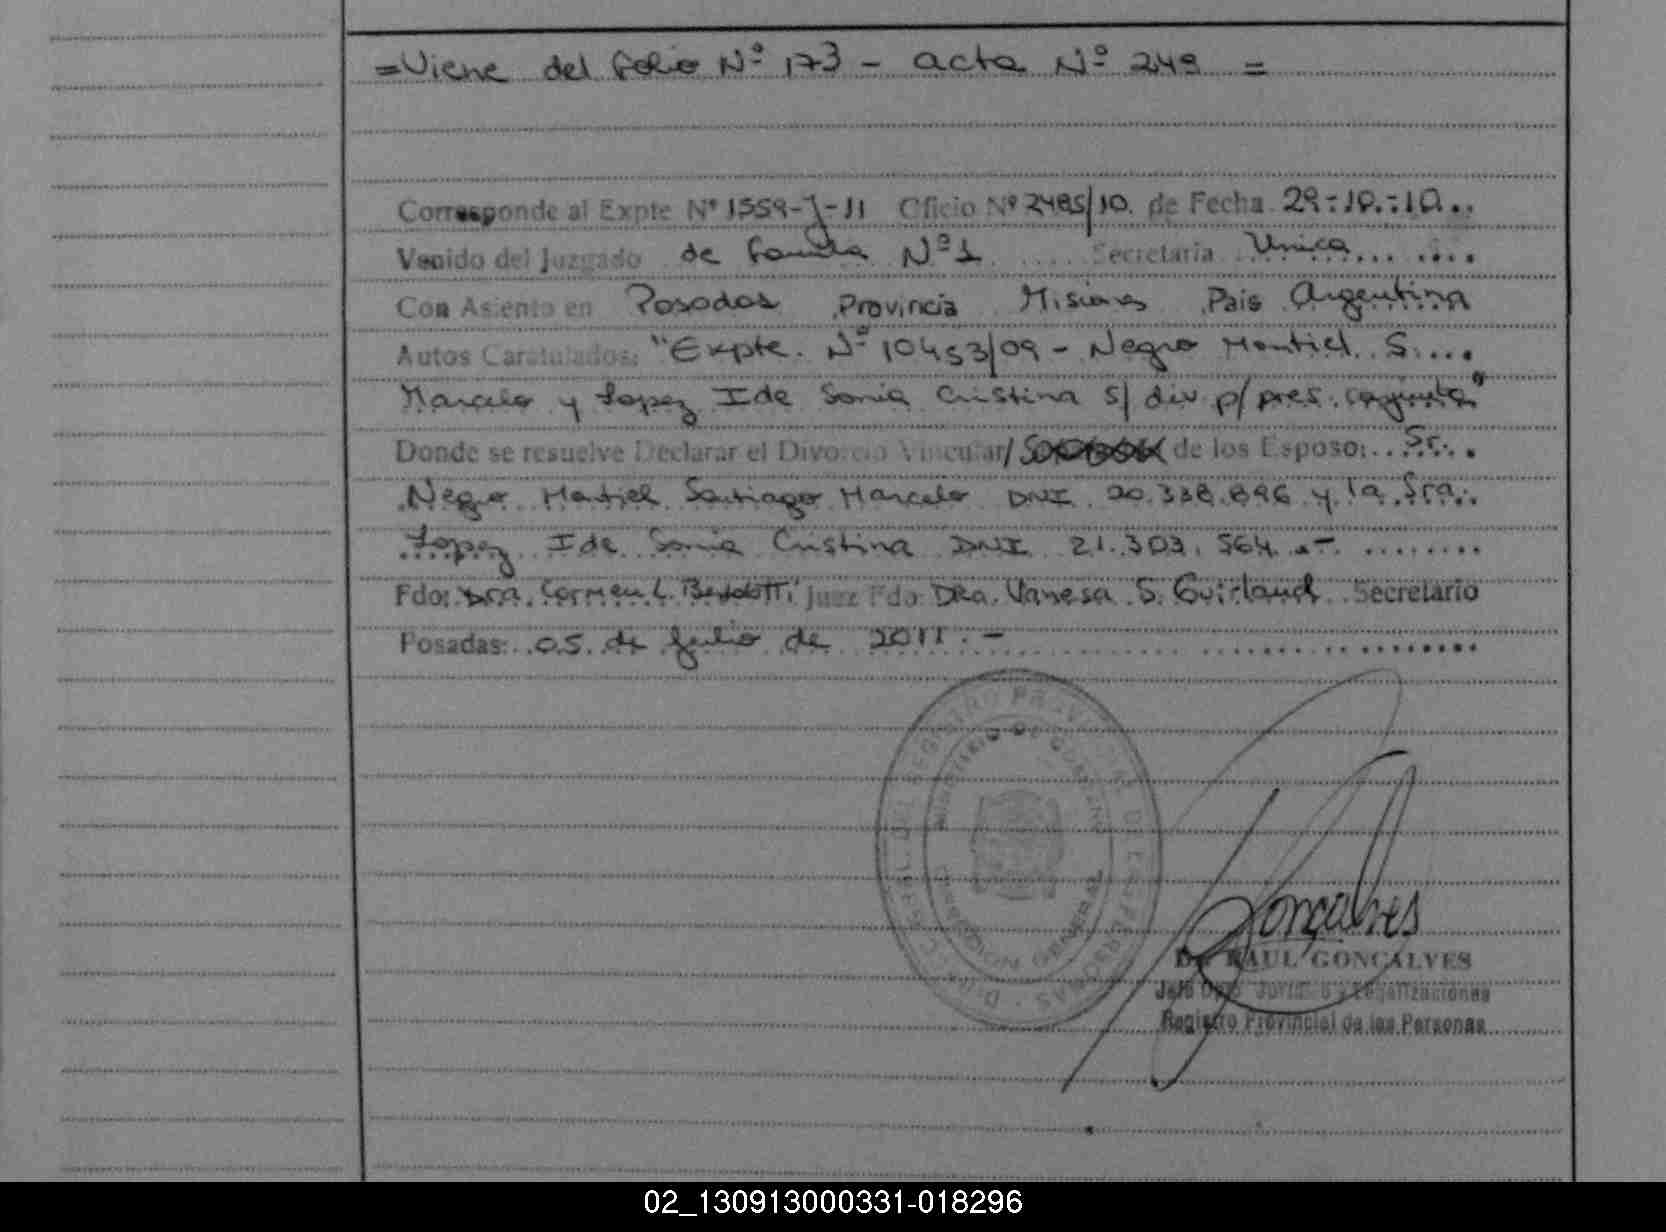 =Viene del folio Nº 173 - acta Nº 249 =
Corresponde al Expte Nº 1559-J-11 Oficio Nº 2485/10. de Fecha 29-10-10..
Venido del Juzgado de Familia Nº 1 Secretaria Unica
Con Asiento en Posadas Provincia Misiones Pais Argentina
Autos Caratulados: "Expte. Nº 10453/09 - Negro Montiel S.
Marcelo y Lopez Ide Sonia Cristina s/ div p/ pres. conjunta"
Donde se resuelve Declarar el Divorcio Vincular/ de los Esposo: Sr.
Negro Montiel Santiago Marcelo DNI 20.338.896 y la Sra.
Lopez Ide Sonia Cristina DNI 21.303.564.-
Fdo: Dra. Carmen L. Juez Fdo: Dra. Vanesa S. Guirland Secretario
Posadas: 05 de Julio de 2011.-
DIR. GRAL. DEL REGISTRO PROVINCIAL DE LAS PERSONAS
MINISTERIO DE GOBIERNO
DIRECCION GENERAL
Gonçalves
Dr. RAUL GONÇALVES
Jefe Dpto. Jurídico y Legalizaciones
Registro Provincial de las Personas
02_130913000331-018296